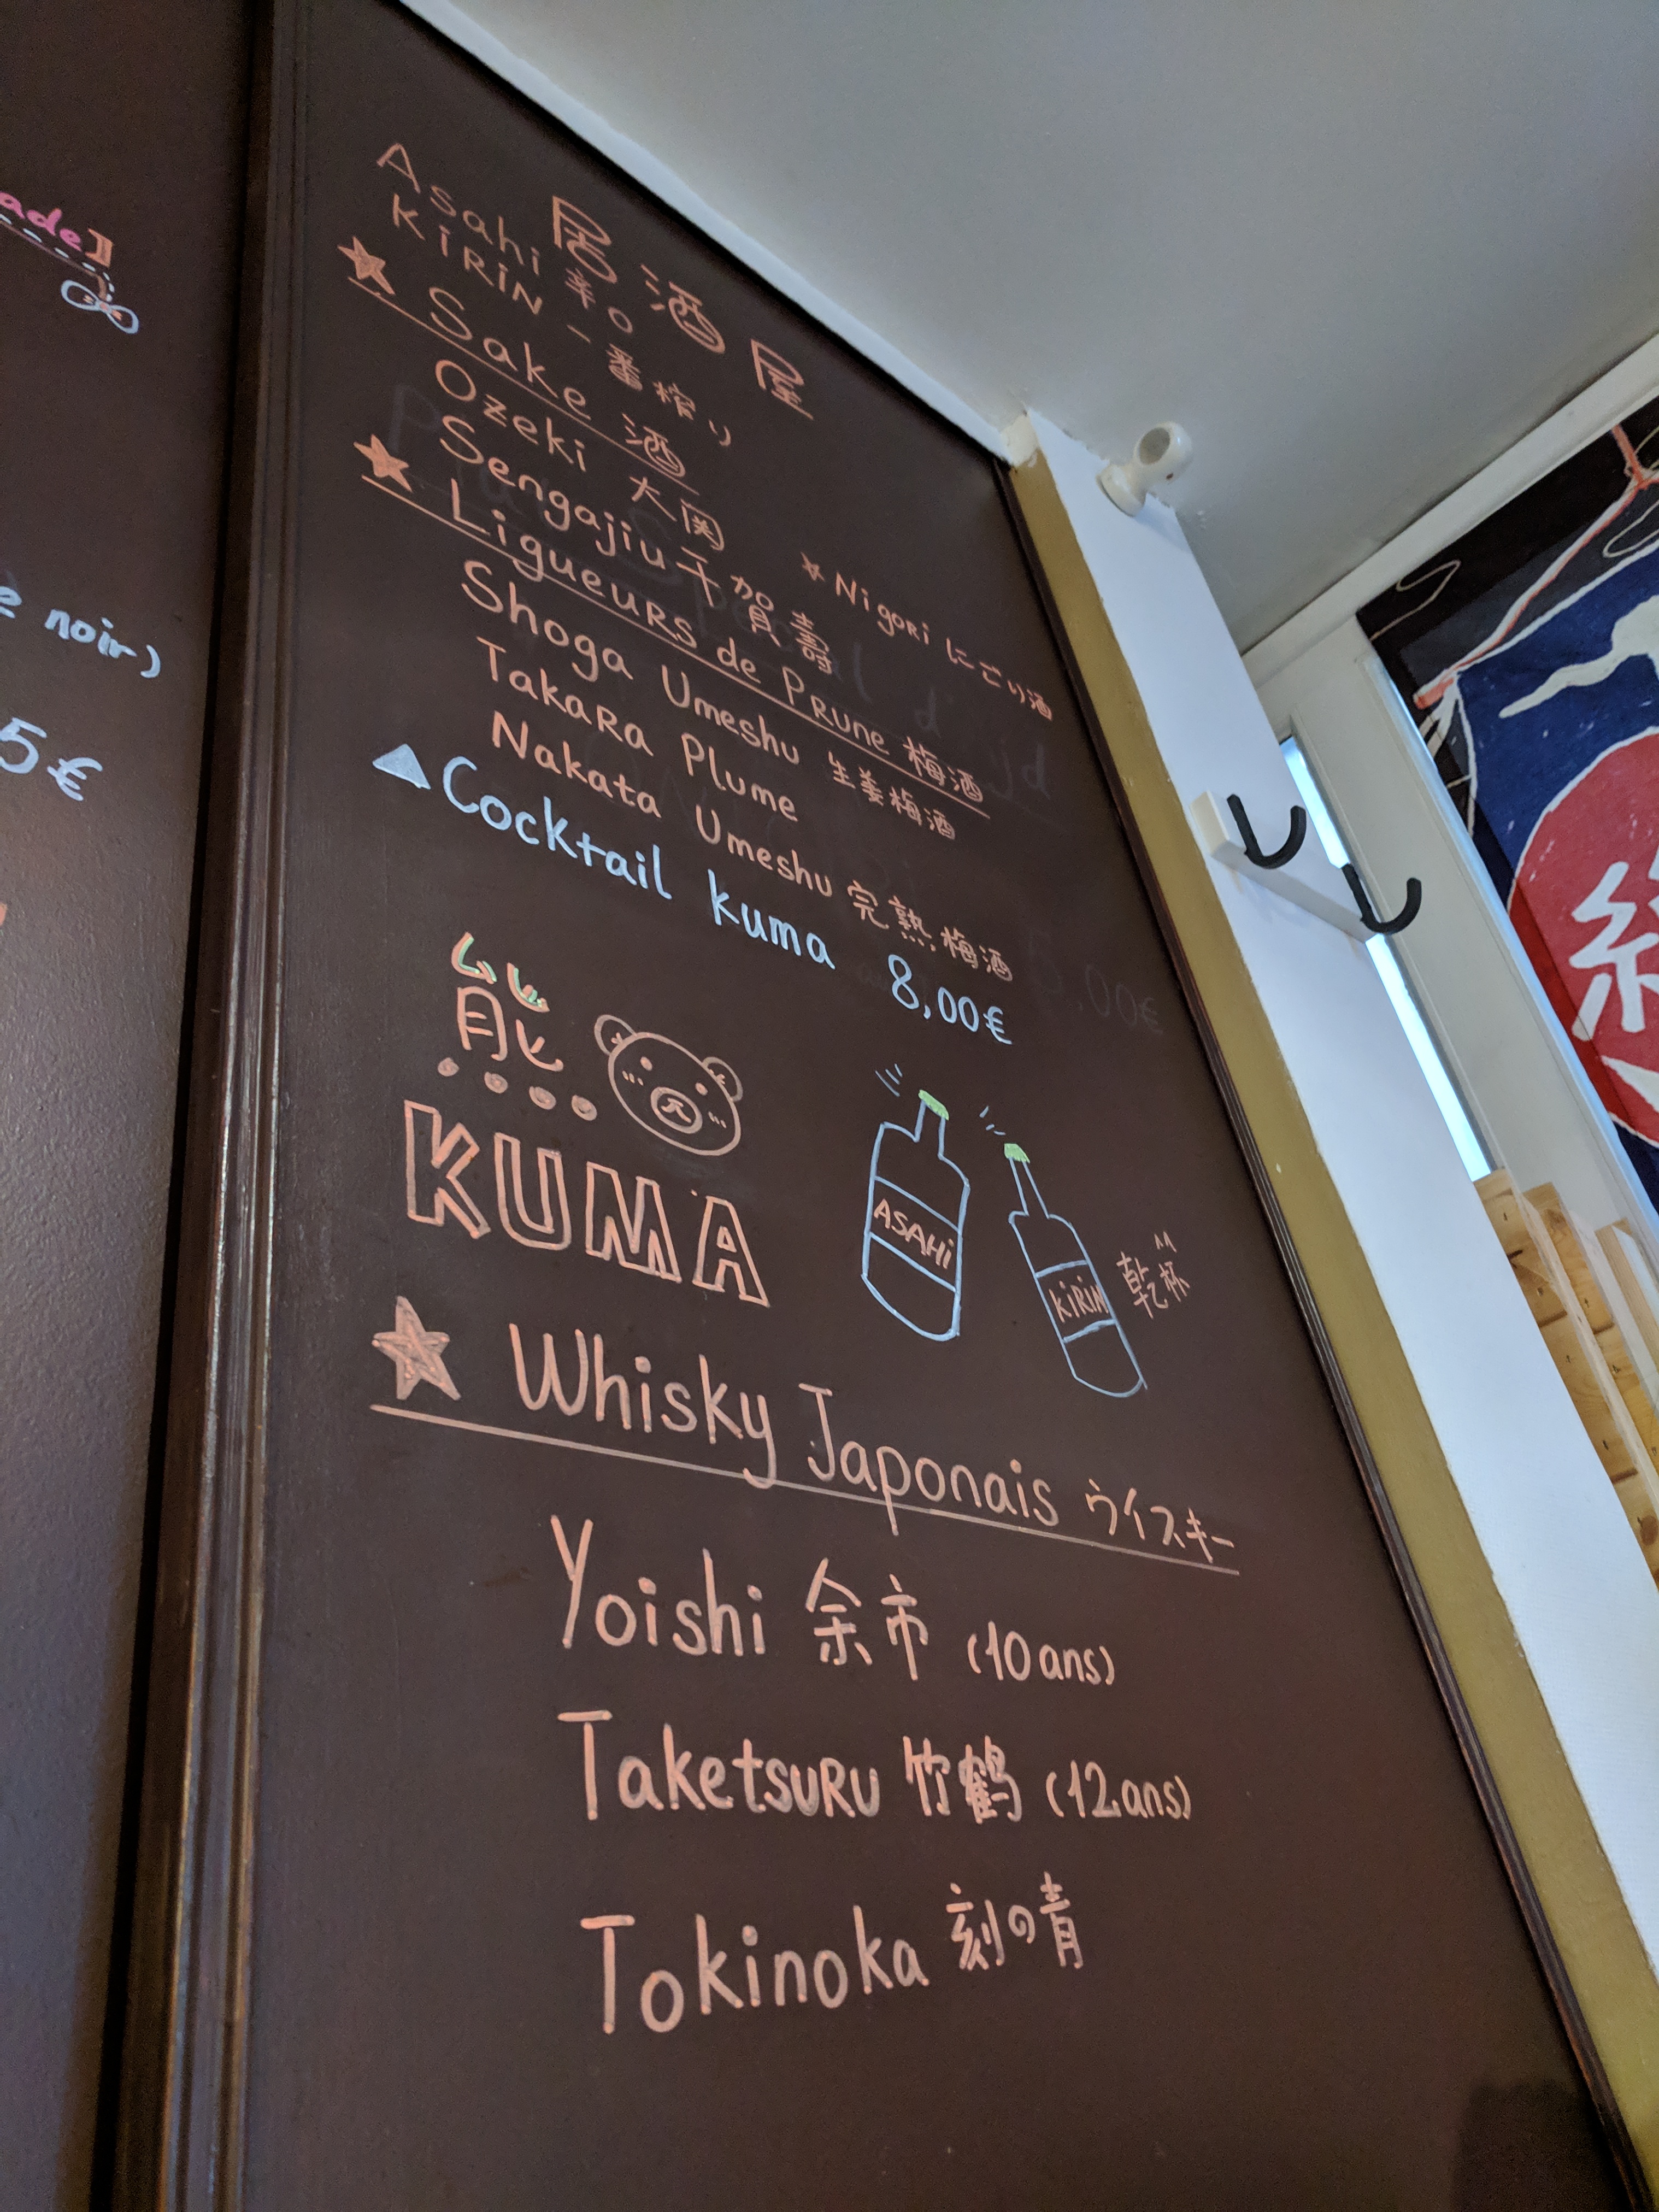 ade】
e noir)
5€
居酒屋
Asahi 辛口
KiRiN 一番搾り
★ Sake 酒
Ozeki 大関
Sengajiu 千賀壽
★ Nigori にごり酒
★ Ligueurs de Prune 梅酒
Shoga Umeshu 生姜梅酒
Takara Plume
Nakata Umeshu 完熟梅酒
▲Cocktail kuma 8,00€
熊
KUMA
ASAHi
KiRiN
乾杯
★ Whisky Japonais ウイスキー
Yoishi 余市 (10ans)
Taketsuru 竹鶴 (12ans)
Tokinoka 刻の青